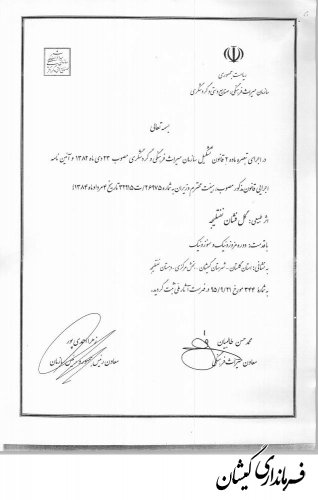 ریاست جمهوری
سازمان میراث فرهنگی، صنایع دستی و گردشگری
بسمه تعالی
در اجرای تبصره ماده ۲ قانون تشکیل سازمان میراث فرهنگی و گردشگری مصوب ۲۳ دی ماه ۱۳۸۲ و آئین نامه
اجرایی قانون مذکور مصوب هیئت محترم وزیران به شماره ۲۶۹۷۵/ت۳۲۹۱۵ تاریخ ۴ مرداد ماه ۱۳۸۴،
اثر طبیعی: گل فشان نفتلیجه
باقدمت: دوره مزوزوئیک و سنوزوئیک
به نشانی: استان گلستان - شهرستان گمیشان - بخش مرکزی - دهستان نفتلیجه
به شماره ۳۴۴ مورخ ۹۵/۹/۲۱ در فهرست آثار ملی ثبت گردید.
محمدحسن طالبیان
معاون میراث فرهنگی
زهرا احمدی پور
معاون رئیس جمهور و رئیس سازمان
فرمانداری گمیشان